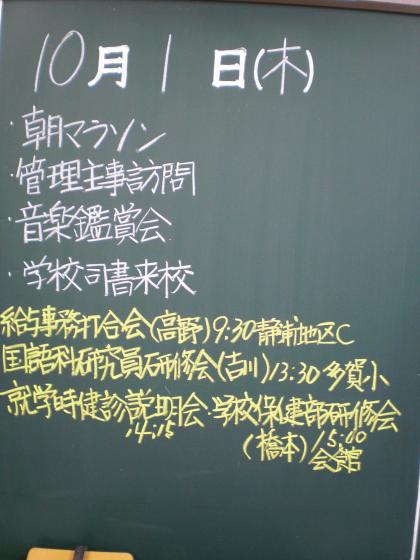 10月1日(木)
・朝マラソン
・管理主事訪問
・音楽鑑賞会
・学校司書来校
給与事務打合会(高野)9:30静浦地区C
国語科研究員研修会(古川)13:30多賀小
就学時健診説明会・学校保健部研修会
14:15 (橋本)15:00
会館